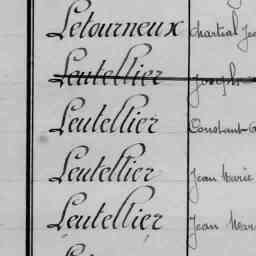 Letourneux Martial Jea
Leutellier Joseph
Leutellier Constant
Leutellier Jean Marie
Leutellier Jean Mar